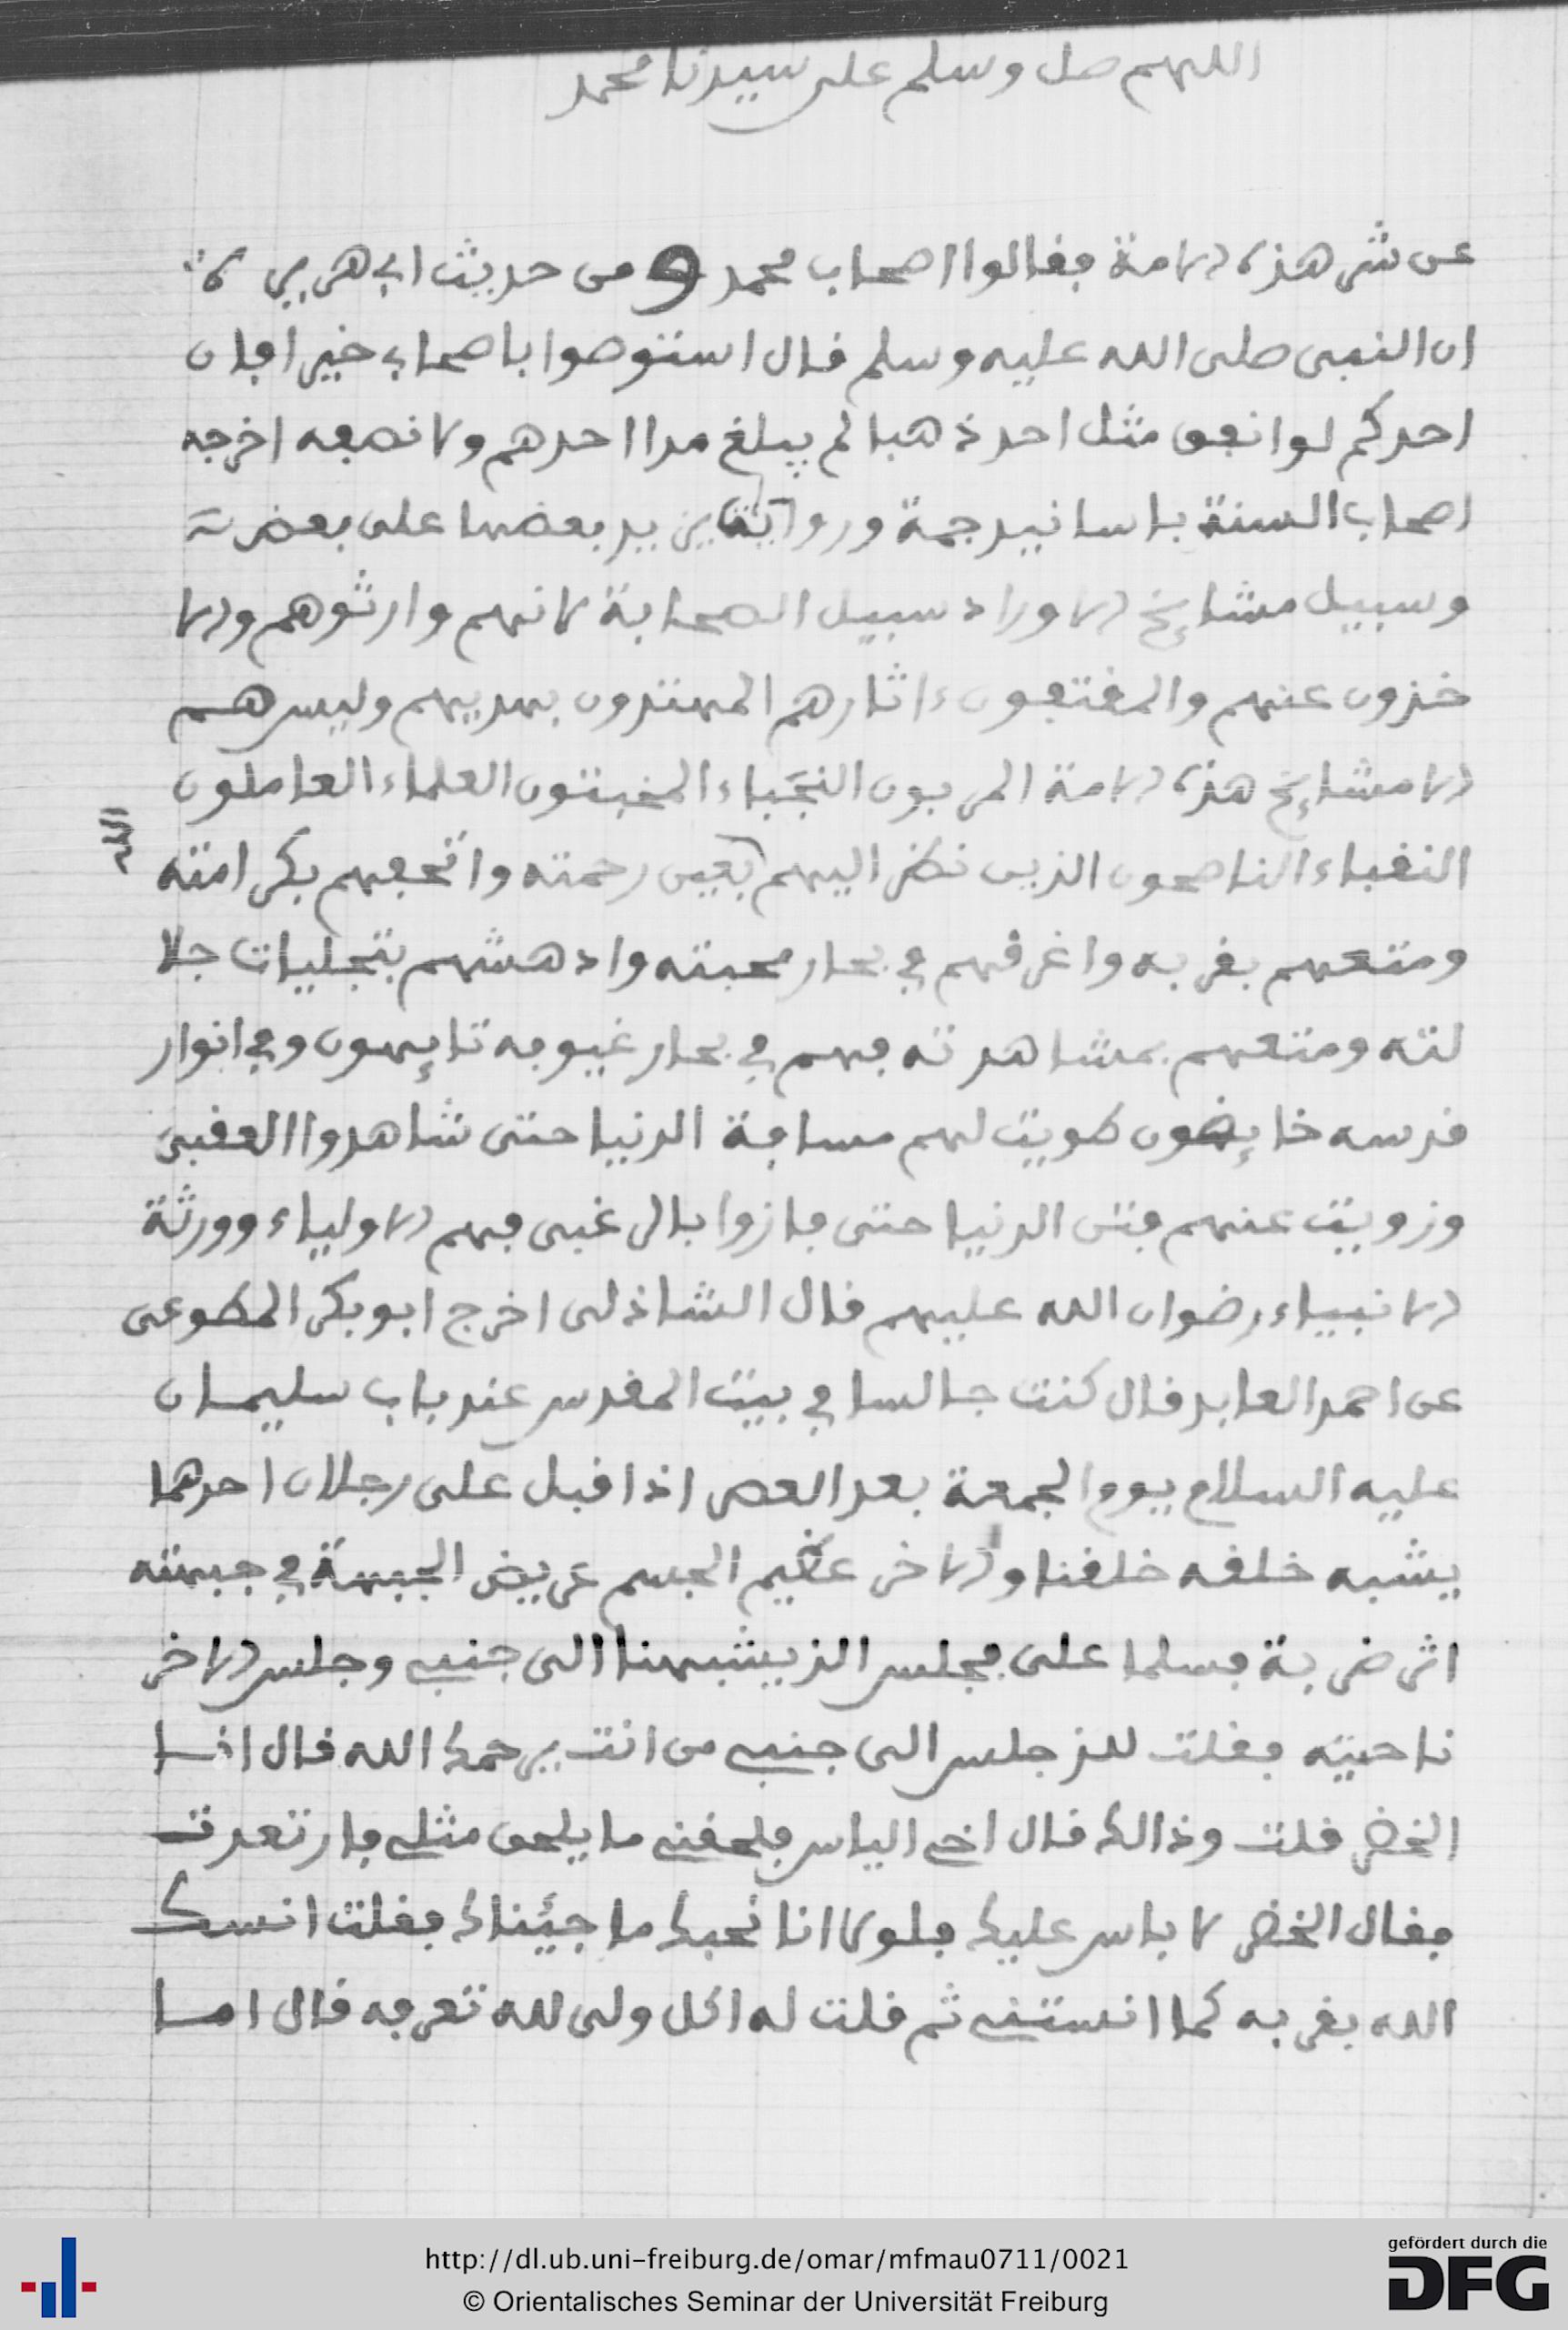 اللهم صل وسلم على سيدنا محمد
عن شر هذه الامة فقالوا اصحاب محمد و من حديث ابي هريرة
ان النبي صلى الله عليه وسلم قال استوصوا باصحابي خيرا فان
احدكم لو انفق مثل احد ذهبا لم يبلغ مدا احدهم ولا نصفه اخرجه
اصحاب السنة باسانيد جمة وروايته يزيد بعضها على بعض
وسبيل مشايخ الاوراد سبيل الصحابة لانهم وارثوهم والا
خذون عنهم والمقتفون ءاثارهم المهتدون بهديهم وليس هم
الا مشايخ هذه الامة المربون النجباء المخبتون العلماء العاملون
النقباء الناصحون الذين نظر اليهم بعين رحمته واتحفهم بكرامته
الله
ومتعهم بقربه واغرقهم في بحار محبته وادهشهم بتجليات جلا
لته ومتعهم بمشاهدته فهم في بحار غيوبه تايهون وفي انوار
قدسه خايضون طويت لهم مسافة الدنيا حتى شاهدوا العقبى
وزويت عنهم فتن الدنيا حتى فازوا بالرغبى فهم الاولياء وورثة
الانبياء رضوان الله عليهم قال الشاذلى اخرج ابو بكر المطوعى
عن احمد العابد قال كنت جالسا في بيت المقدس عند باب سليمان
عليه السلام يوم الجمعة بعد العصر اذ اقبل على رجلان احدهما
يشبه خلقه خلقنا والاخر عظيم الجسم عريض الجبهة في جبهته
اثر ضربة فسلما على فجلس الذ يشبهنا الى جنبي وجلس الاخر
ناحيته فقلت للذ جلس الى جنبي من انت يرحمك الله قال انا
الخضر قلت وذالك قال اخي الياس فلحقني ما يلحق مثلي فارتعدت
فقال الخضر لا باس عليك فلولا انا نحبك ما جيئناك فقلت انسك
الله بقربه كما انستني ثم قلت له اكل ولى لله تعرفه قال اما
http://dl.ub.uni-freiburg.de/omar/mfmau0711/0021
© Orientalisches Seminar der Universität Freiburg
gefördert durch die
DFG